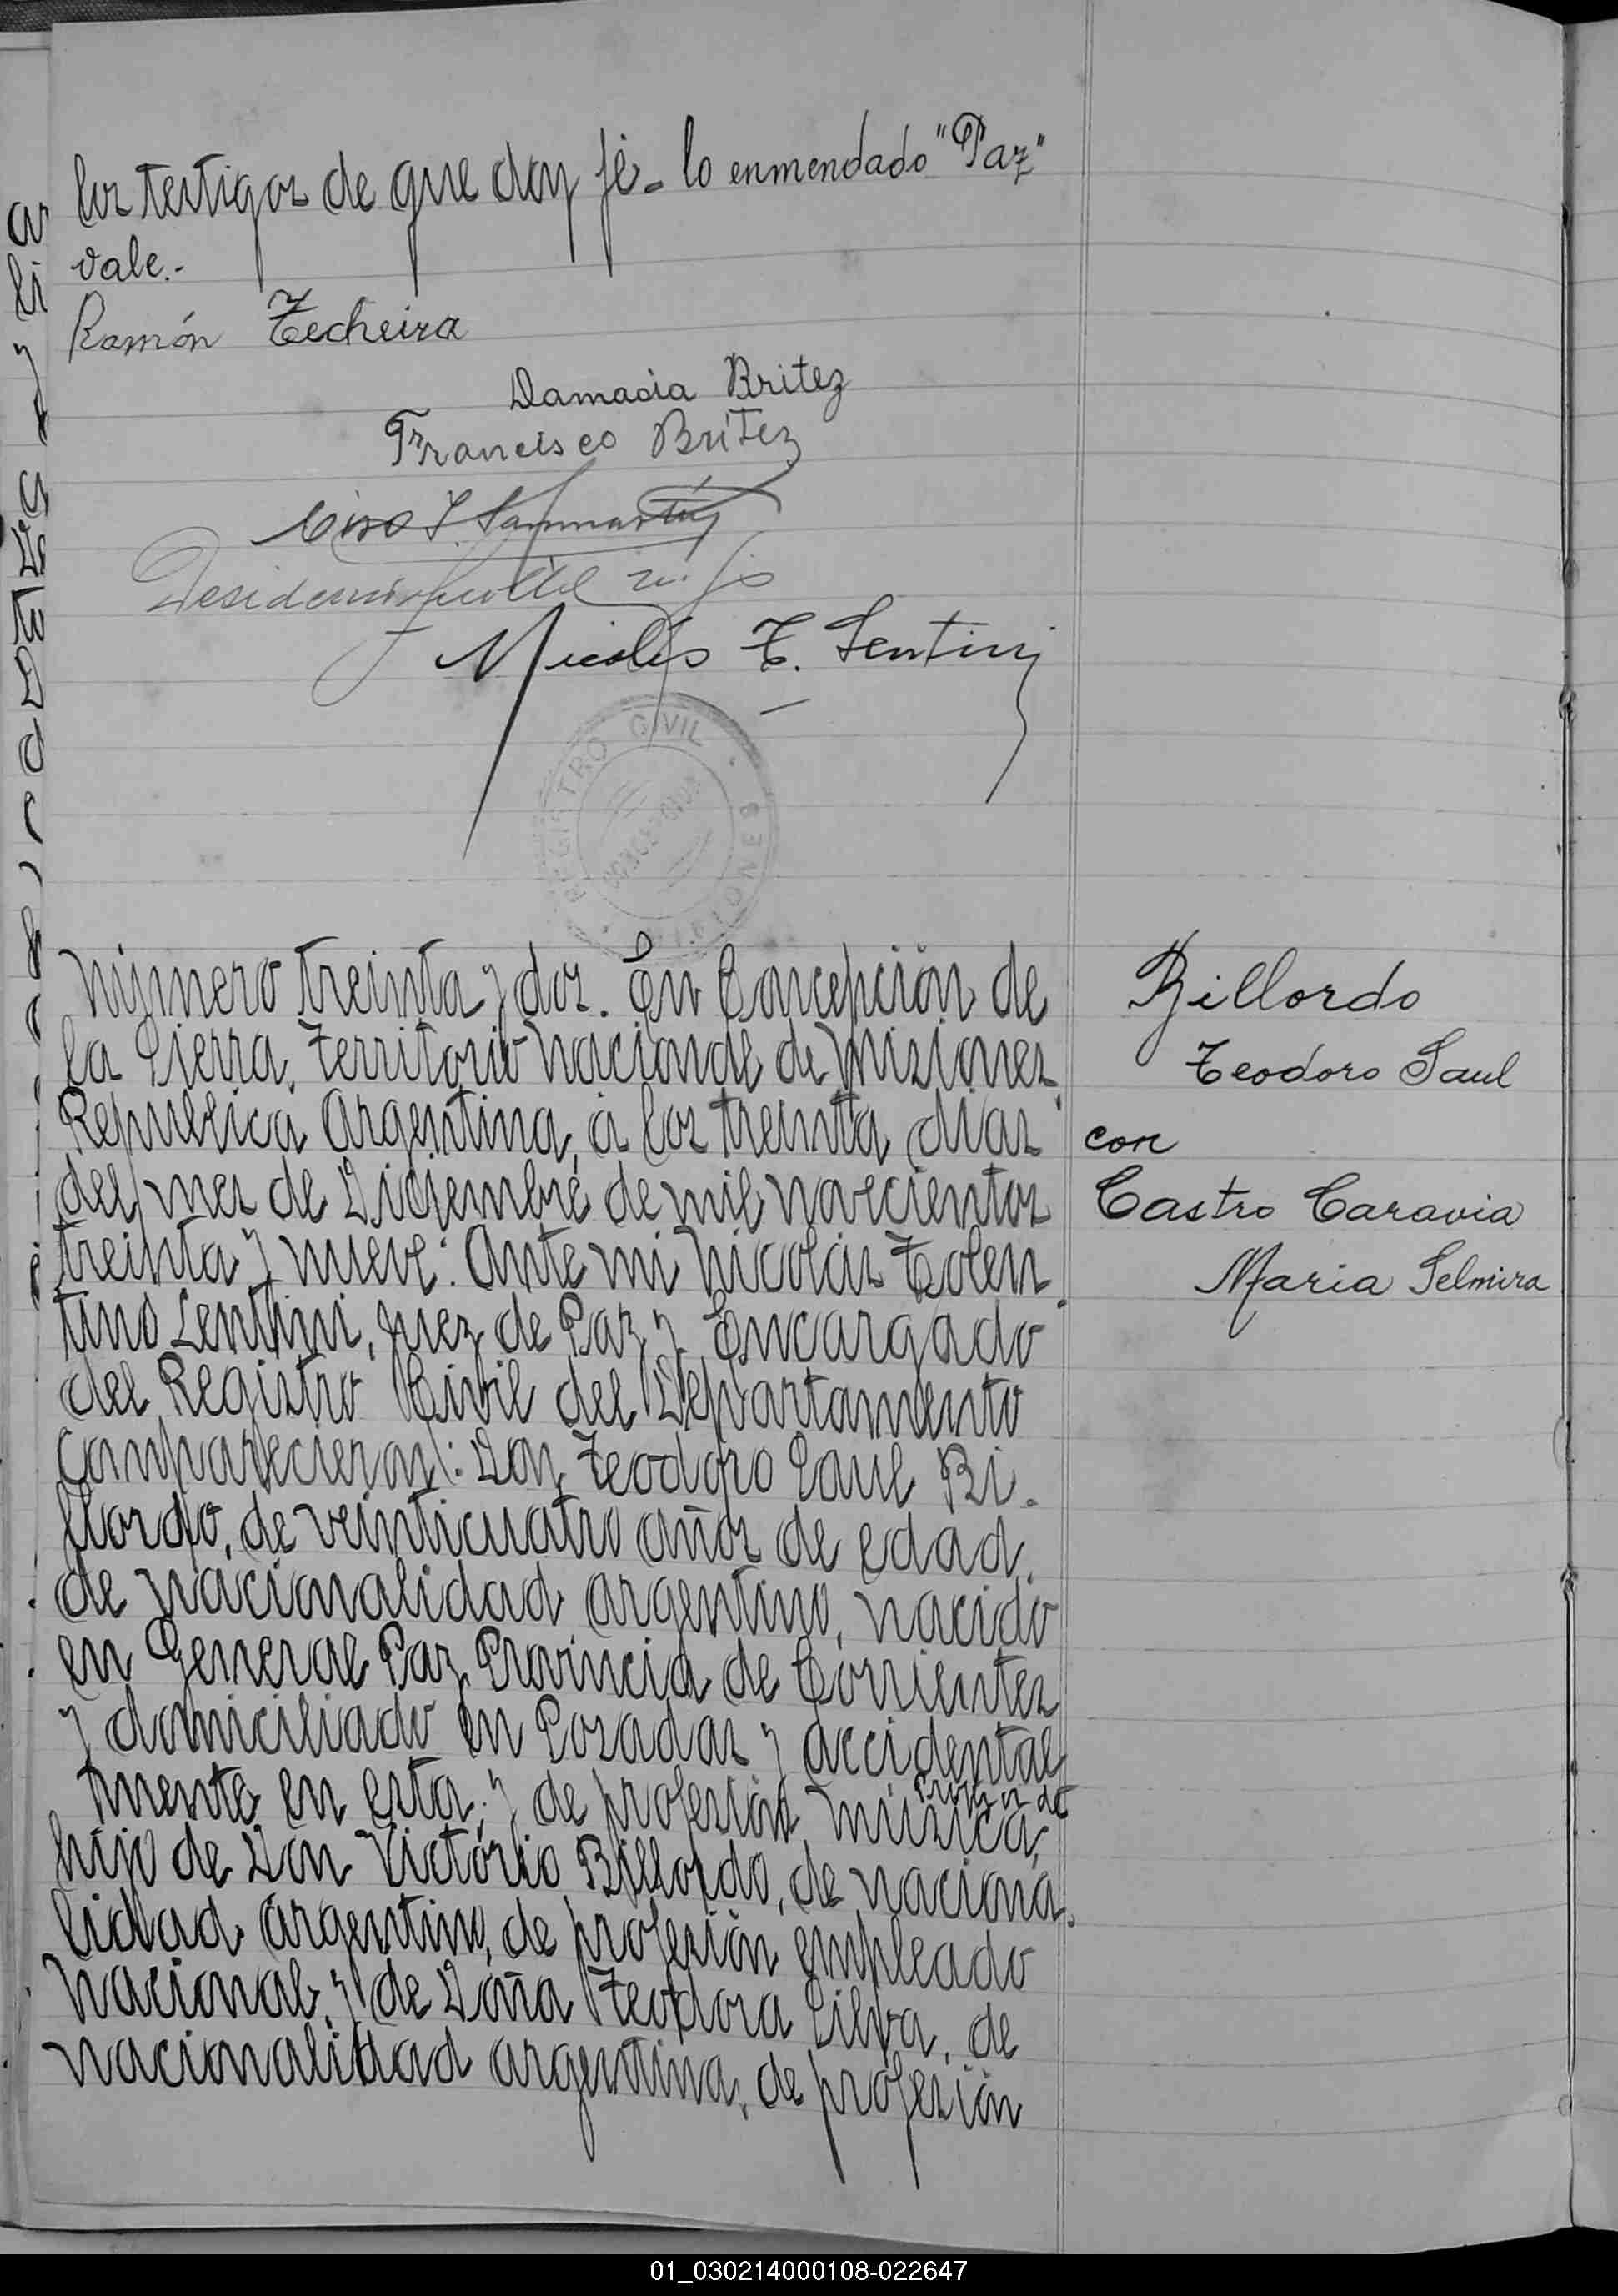 los testigos de que doy fé. lo enmendado "Paz"
vale.-
Ramón Techeira
Damasia Britez
Francisco Britez
Nicolás T. Lentini
REGISTRO CIVIL
MISIONES
Número treinta y dos. En Concepción de
la Sierra, Territorio Nacional de Misiones,
República Argentina, á los treinta dias
del mes de Diciembre de mil novecientos
treinta y nueve: Ante mi Nicolás Tolen
tino Lentini, Juez de Paz y Encargado
del Registro Civil del Departamento
comparecieron: Don Teodoro Saul Bi-
llordo, de veinticuatro años de edad,
de nacionalidad argentino, nacido
en General Paz Provincia de Corrientes
y domiciliado en Posadas y accidental
mente en esta, y de profesión música,
hijo de Don Victório Billordo, de naciona-
lidad argentino, de profesión empleado
Nacional, y de Doña Teodora Silva, de
nacionalidad argentina, de profesión
Billordo
Teodoro Saul
con
Castro Caravia
Maria Selmira
01_030214000108-022647